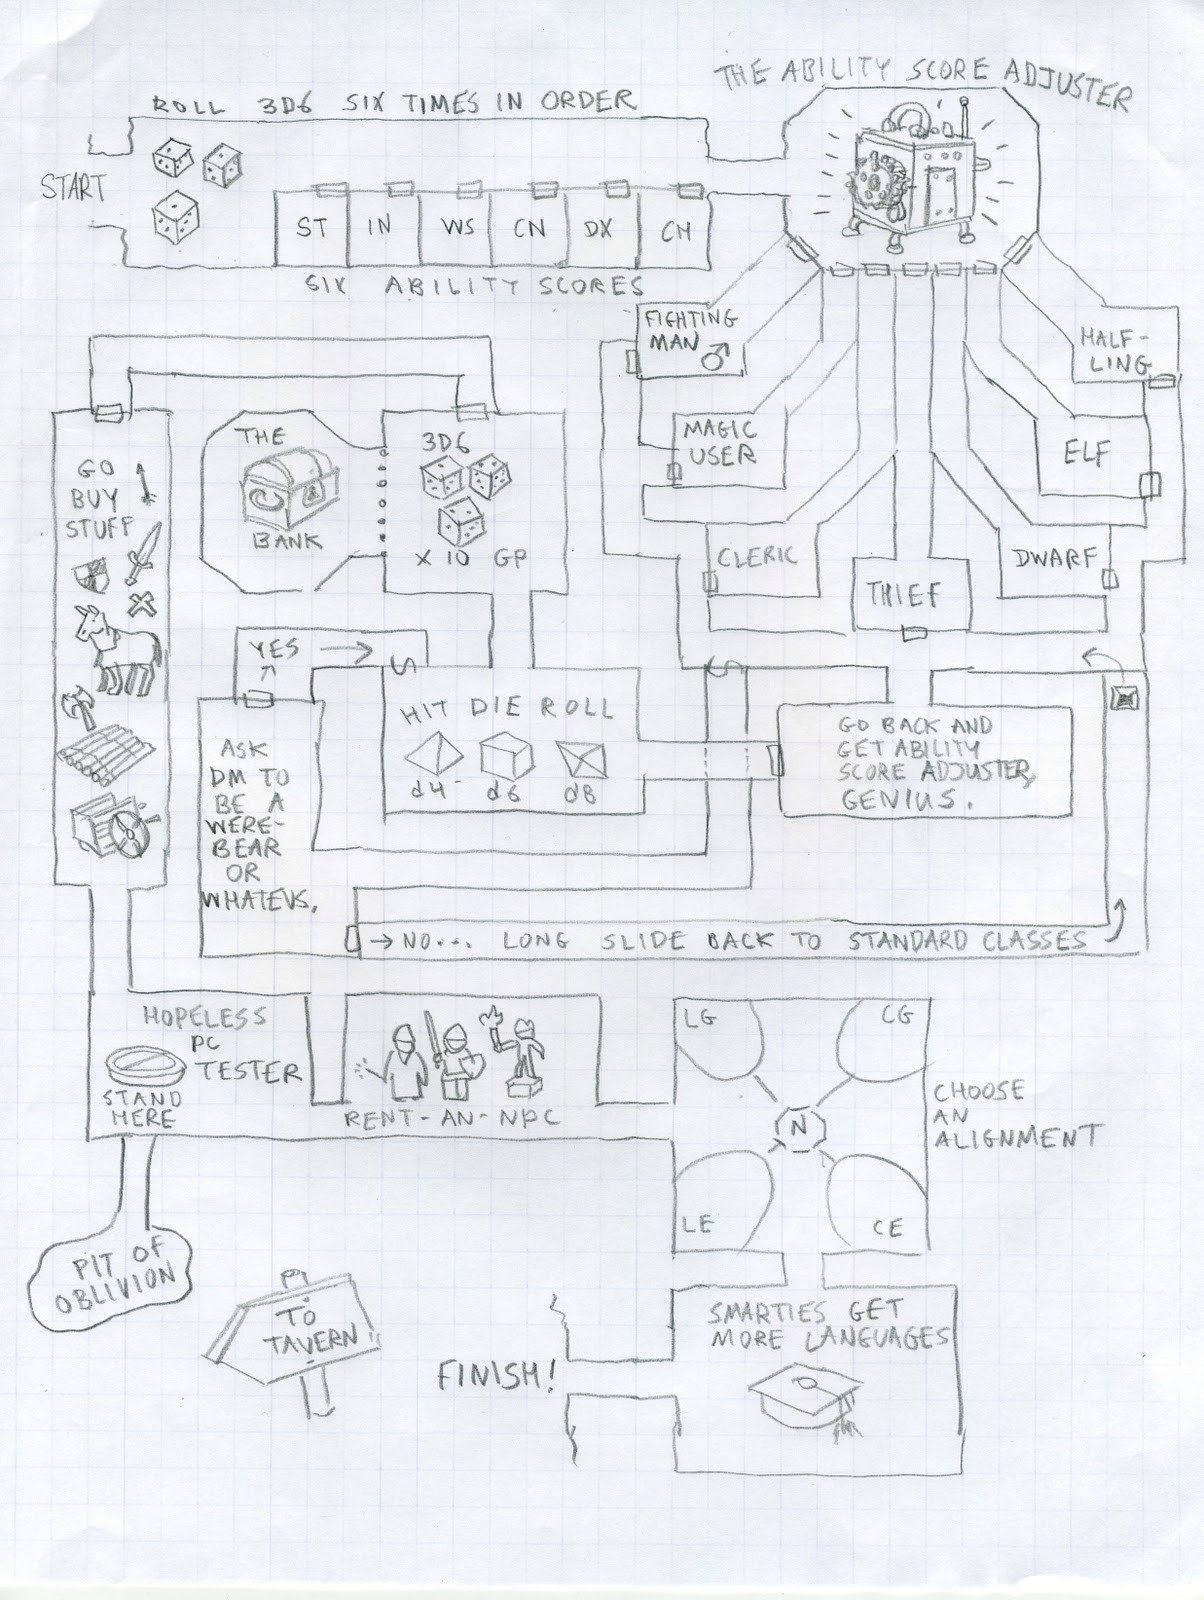 THE ABILITY SCORE ADJUSTER
ROLL 3D6 SIX TIMES IN ORDER
START
ST
IN
WS
CN
DX
CH
SIX ABILITY SCORES
FIGHTING
MAN
HALF-
LING
MAGIC
USER
ELF
CLERIC
DWARF
THIEF
THE
BANK
3D6
X 10 GP
GO
BUY
STUFF
YES
HIT DIE ROLL
d4
d6
d8
GO BACK AND
GET ABILITY
SCORE ADJUSTER,
GENIUS.
ASK
DM TO
BE A
WERE-
BEAR
OR
WHATEVS.
→ NO... LONG SLIDE BACK TO STANDARD CLASSES
HOPELESS
PC
TESTER
STAND
HERE
RENT-AN-NPC
LG
CG
N
LE
CE
CHOOSE
AN
ALIGNMENT
PIT OF
OBLIVION
TO
TAVERN
FINISH!
SMARTIES GET
MORE LANGUAGES